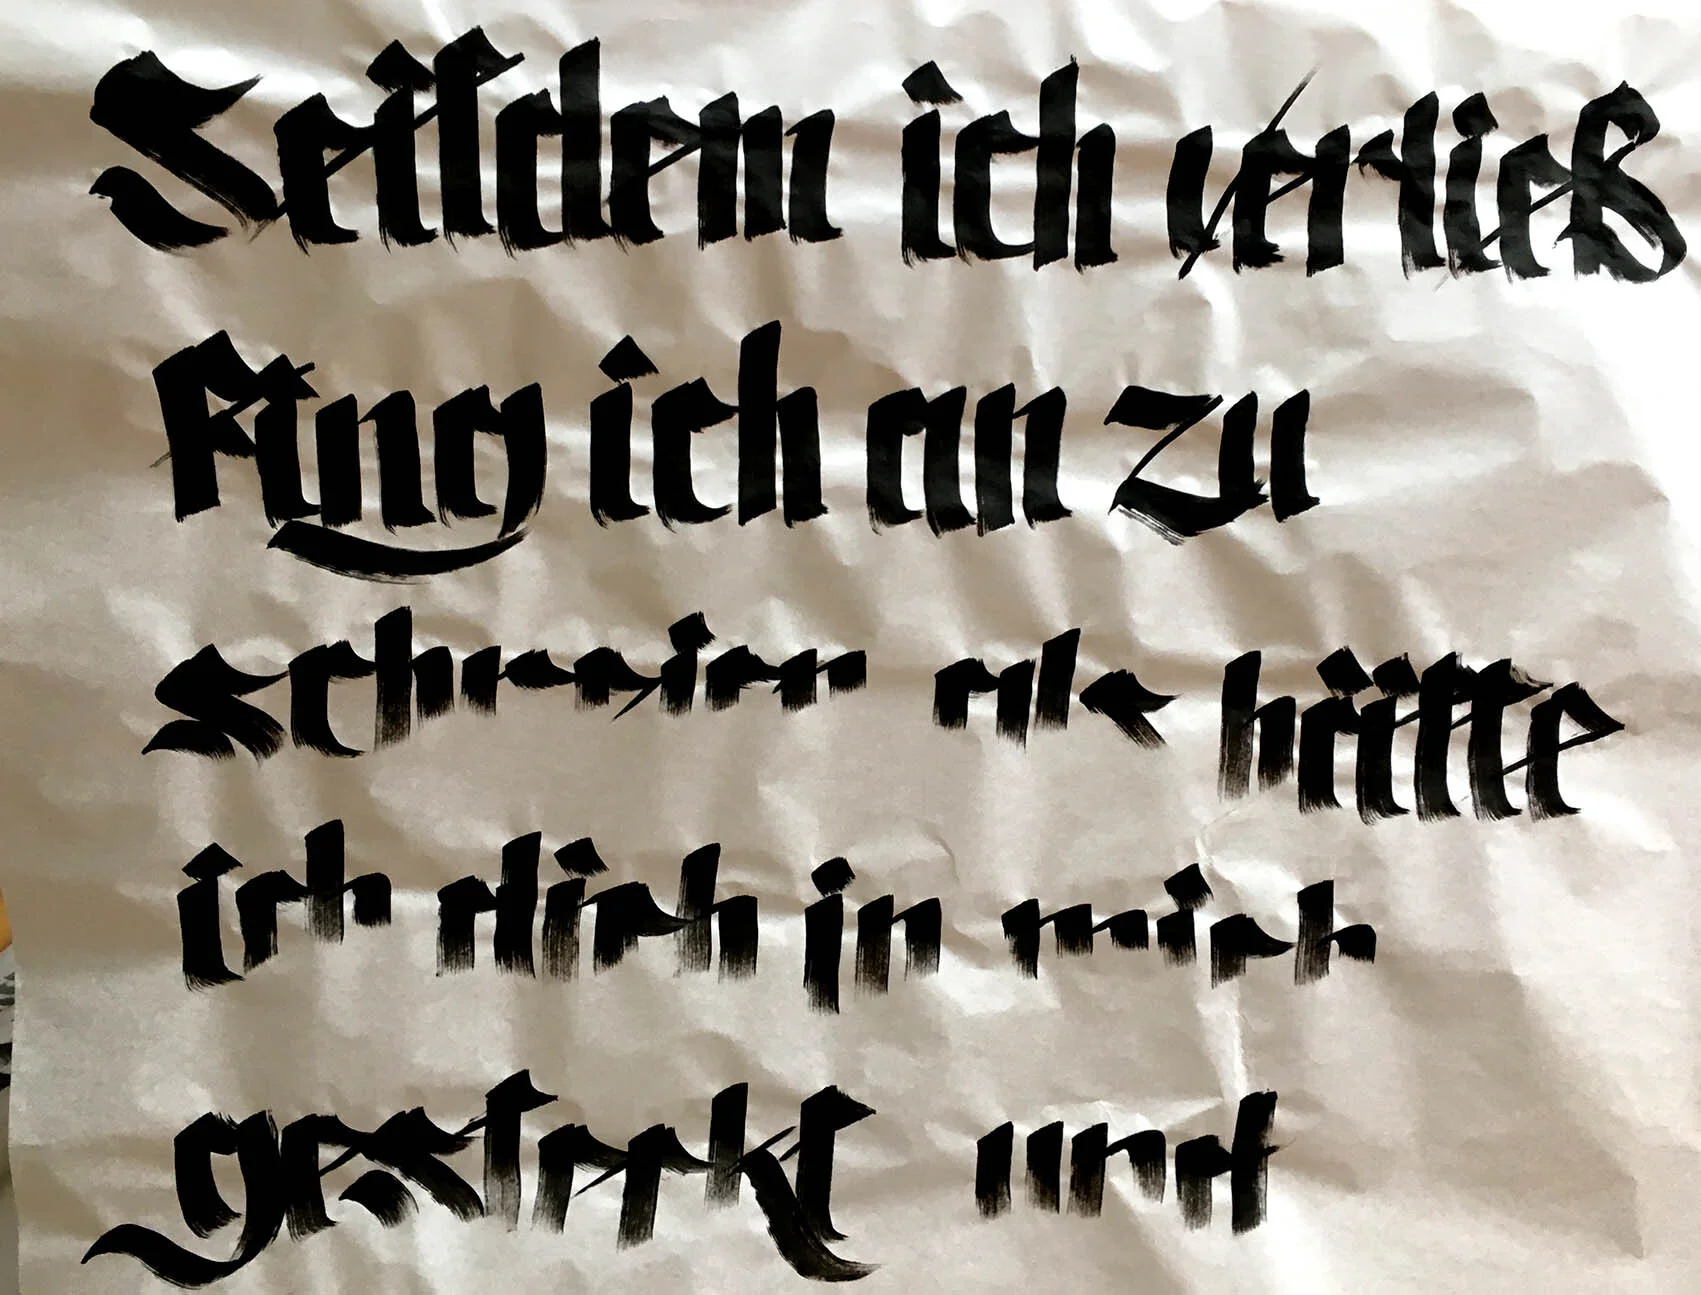 Seitdem ich verließ
fing ich an zu
schreien als hätte
ich dich in mich
gesteckt und